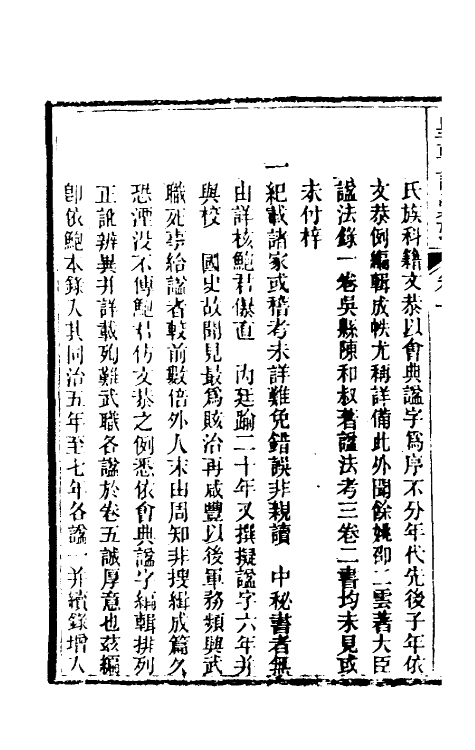 氏族科籍文恭以會典諡字爲序不分年代先後子年依
文恭例編輯成帙尤稱詳備此外聞餘姚邵二雲著大臣
諡法錄一卷吳縣陳和叔著諡法考三卷二書均未見或
未付梓
一紀載諸家或稽考未詳難免錯誤非親讀　中秘書者無
由詳核鮑君儤直　內廷踰二十年又撰擬諡字六年并
與校　國史故聞見最爲賅洽再咸豐以後軍務頻興武
職死事給諡者較前數倍外人末由周知非搜緝成篇久
恐湮没不傳鮑君仿文恭之例悉依會典諡字編輯排列
正訛辨異并詳載殉難武職各諡於卷五誠厚意也茲編
卽依鮑本錄入其同治五年至七年各諡一并續錄增入